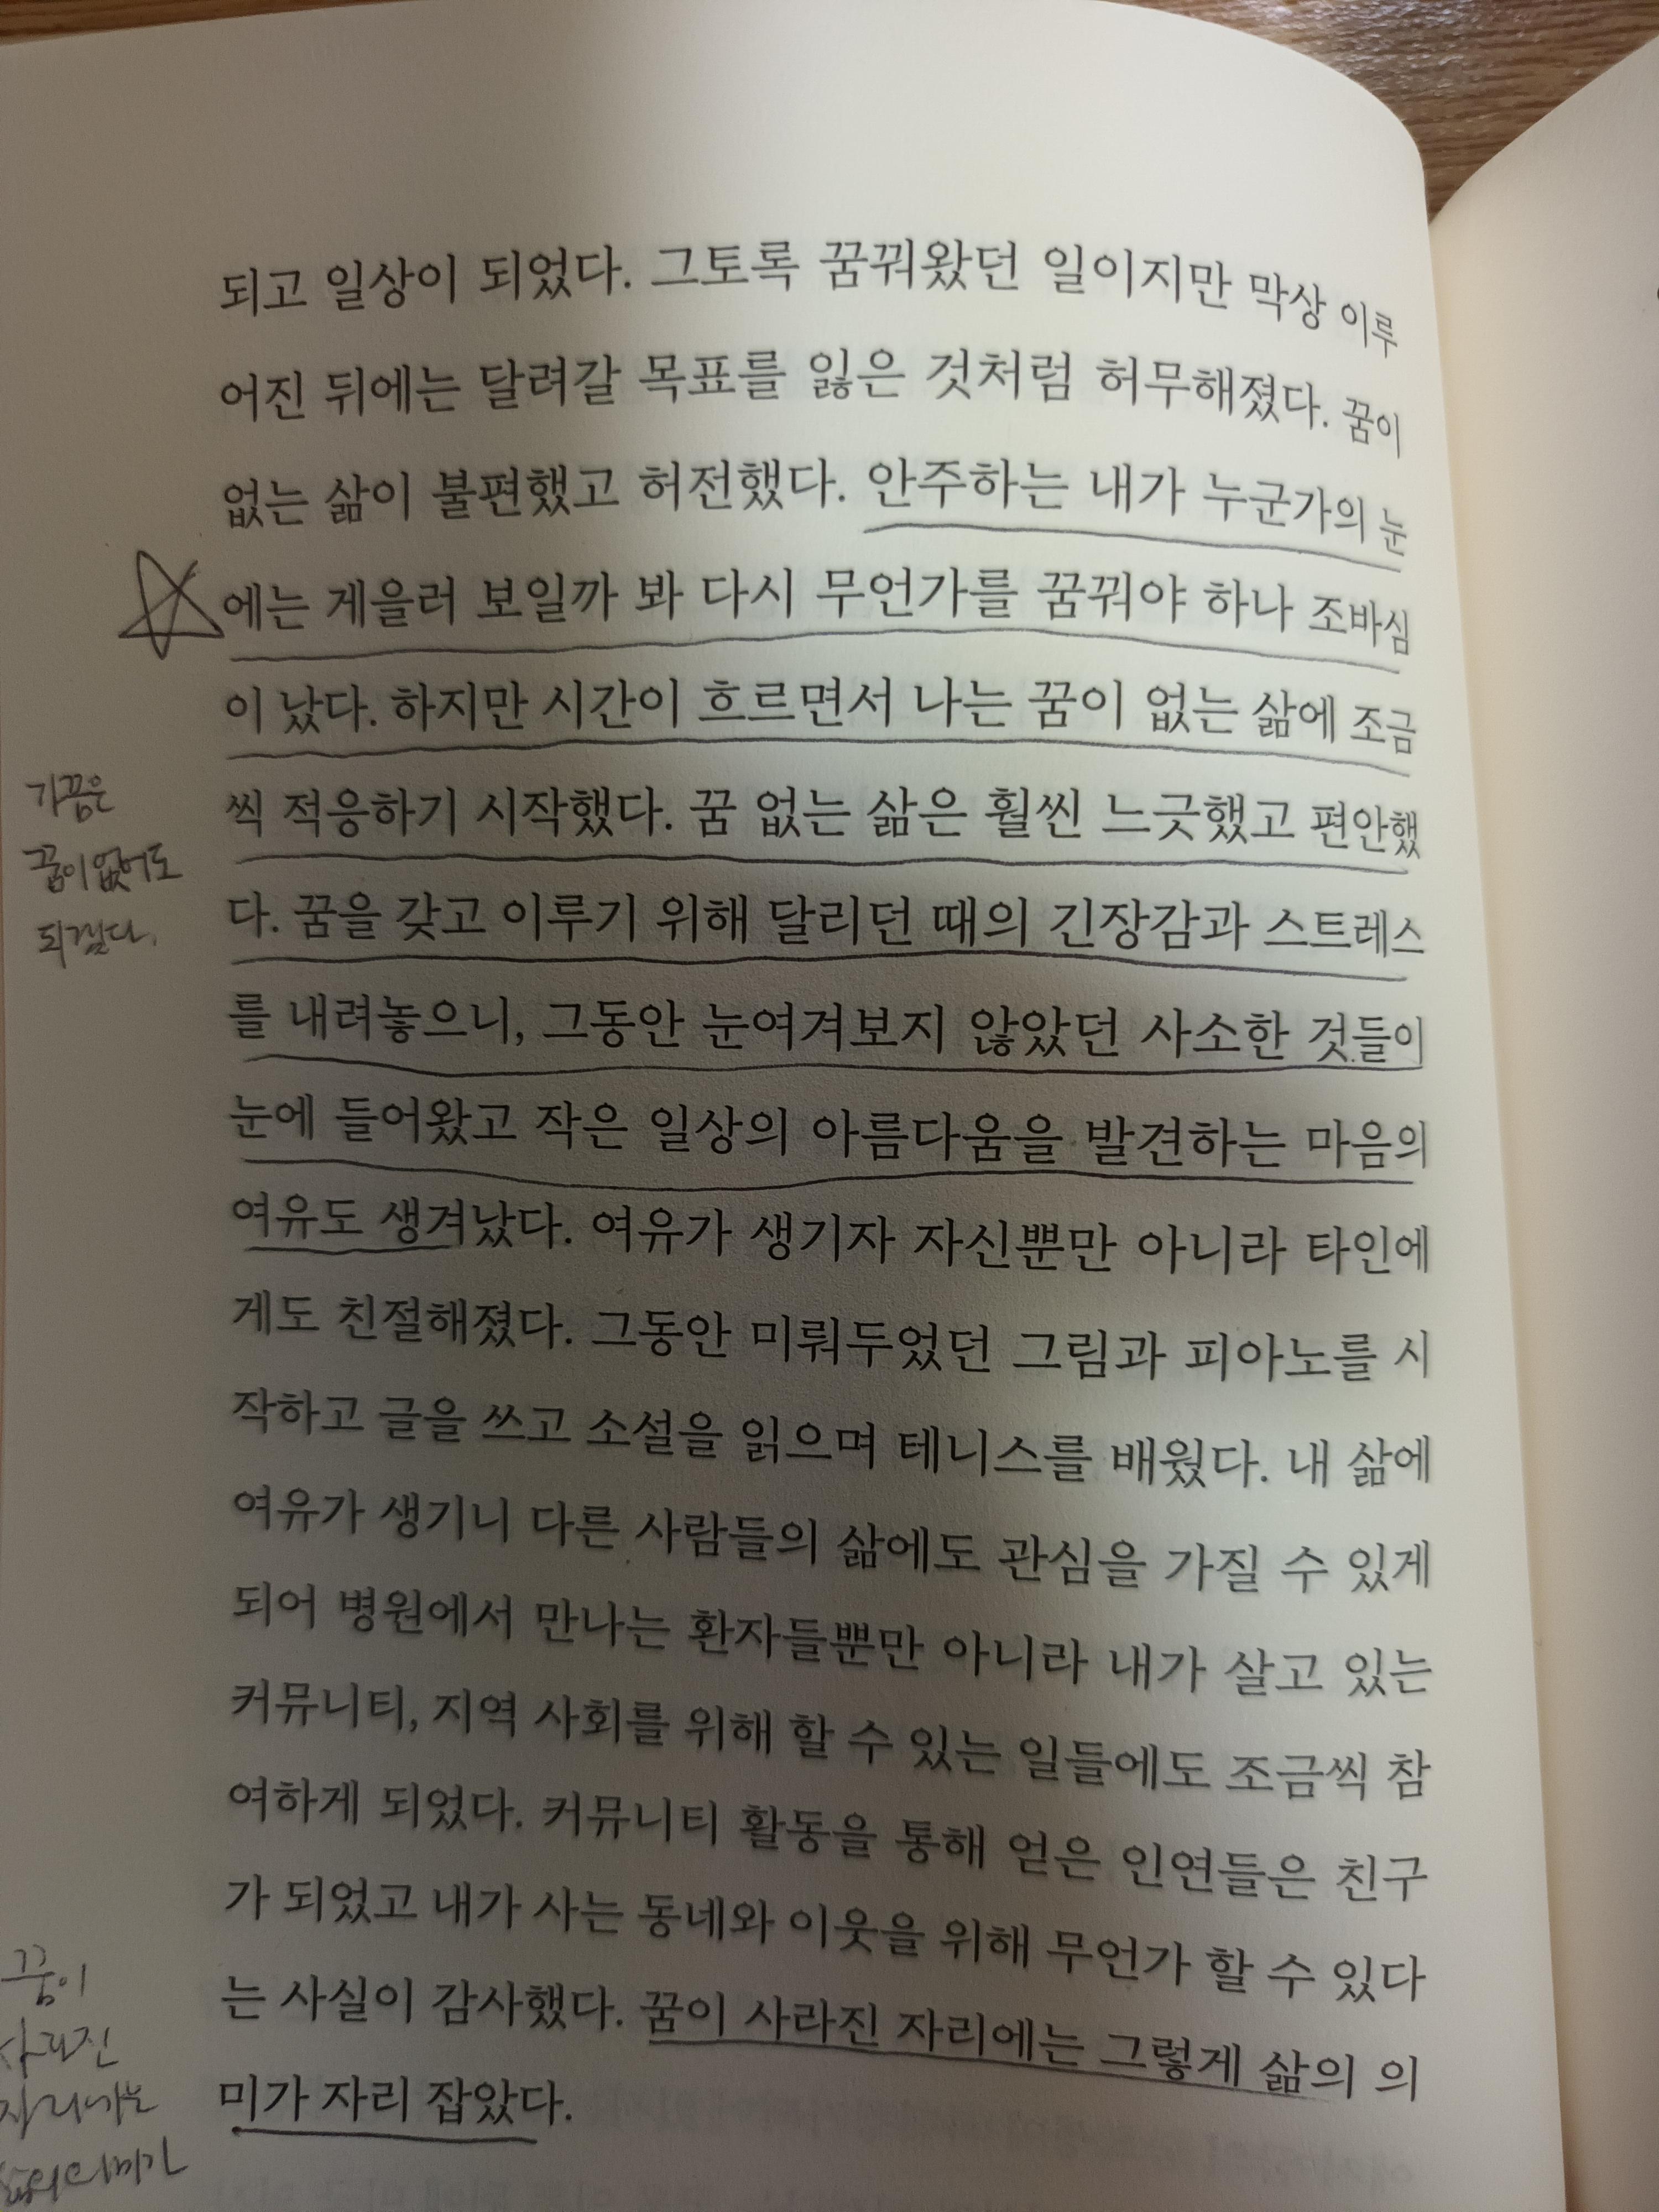 되고 일상이 되었다. 그토록 꿈꿔왔던 일이지만 막상 이루
어진 뒤에는 달려갈 목표를 잃은 것처럼 허무해졌다. 꿈이
없는 삶이 불편했고 허전했다. 안주하는 내가 누군가의 눈
에는 게을러 보일까 봐 다시 무언가를 꿈꿔야 하나 조바심
이 났다. 하지만 시간이 흐르면서 나는 꿈이 없는 삶에 조금
씩 적응하기 시작했다. 꿈 없는 삶은 훨씬 느긋했고 편안했
다. 꿈을 갖고 이루기 위해 달리던 때의 긴장감과 스트레스
를 내려놓으니, 그동안 눈여겨보지 않았던 사소한 것들이
눈에 들어왔고 작은 일상의 아름다움을 발견하는 마음의
여유도 생겨났다. 여유가 생기자 자신뿐만 아니라 타인에
게도 친절해졌다. 그동안 미뤄두었던 그림과 피아노를 시
작하고 글을 쓰고 소설을 읽으며 테니스를 배웠다. 내 삶에
여유가 생기니 다른 사람들의 삶에도 관심을 가질 수 있게
되어 병원에서 만나는 환자들뿐만 아니라 내가 살고 있는
커뮤니티, 지역 사회를 위해 할 수 있는 일들에도 조금씩 참
여하게 되었다. 커뮤니티 활동을 통해 얻은 인연들은 친구
가 되었고 내가 사는 동네와 이웃을 위해 무언가 할 수 있다
는 사실이 감사했다. 꿈이 사라진 자리에는 그렇게 삶의 의
미가 자리 잡았다.
가끔은
꿈이 없어도
되겠다.
꿈이
사라진
자리에는
삶의 의미가